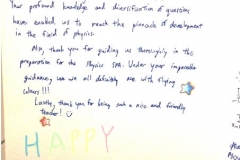 Your profound knowledge and diversification of question
have enabled us to reach the pinnacle of development
in the field of physics.
Also, thank you for guiding us thoroughly in the
preparation for the Physics SPA. Under your impeccable
guidance, can we all definitely ace with flying
colours!!!
Lastly, thank you for being such a nice and friendly
teacher!
HAPPY